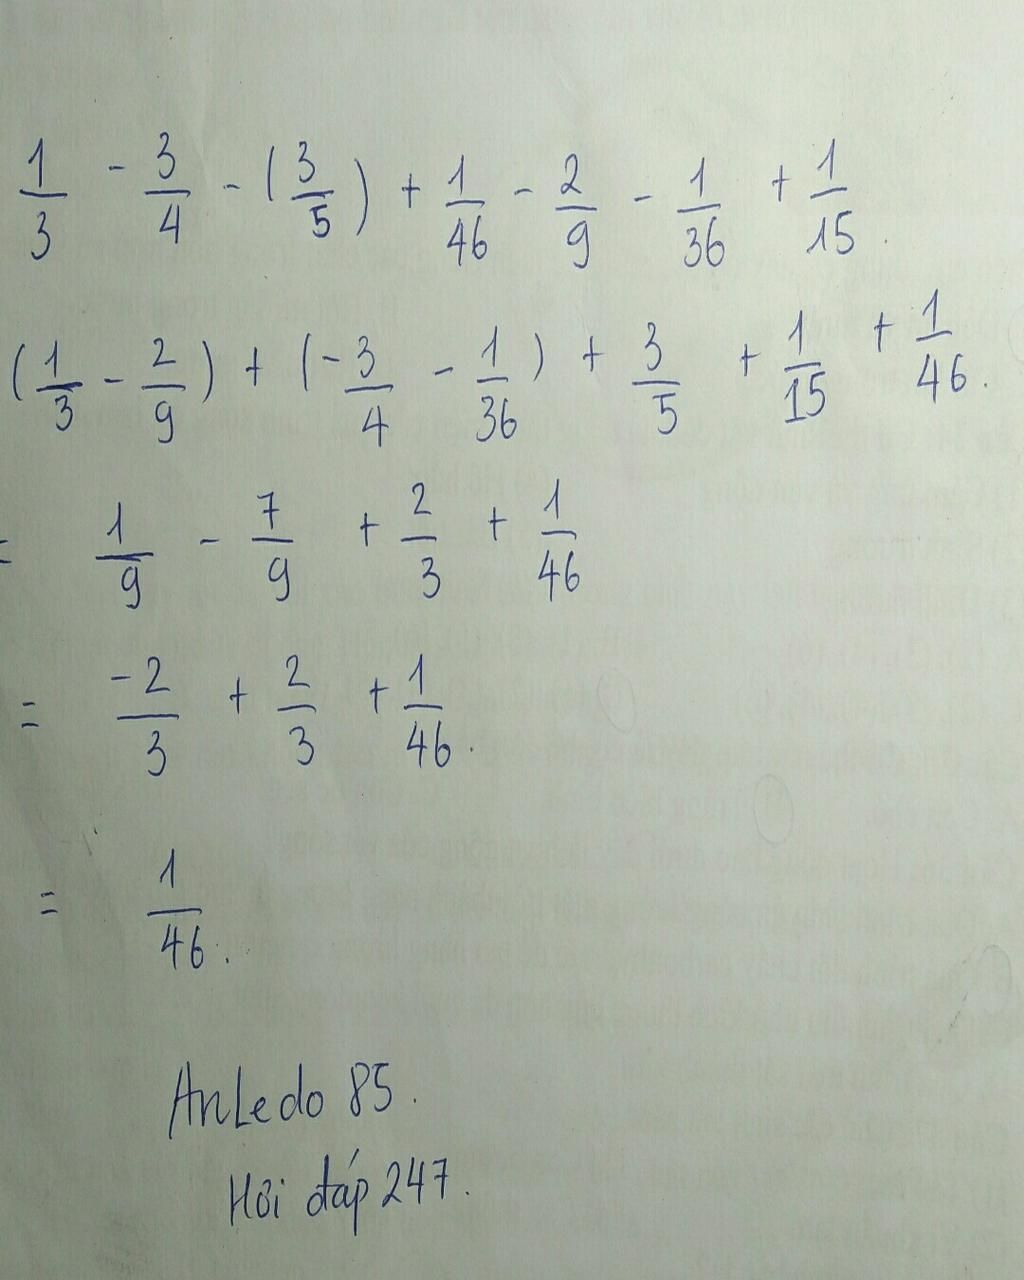 1/3 - 3/4 - (3/5) + 1/46 - 2/9 - 1/36 + 1/15.
(1/3 - 2/9) + (-3/4 - 1/36) + 3/5 + 1/15 + 1/46.
= 1/9 - 7/9 + 2/3 + 1/46
= -2/3 + 2/3 + 1/46.
= 1/46.
AnLedo 85.
Hỏi đáp 247.